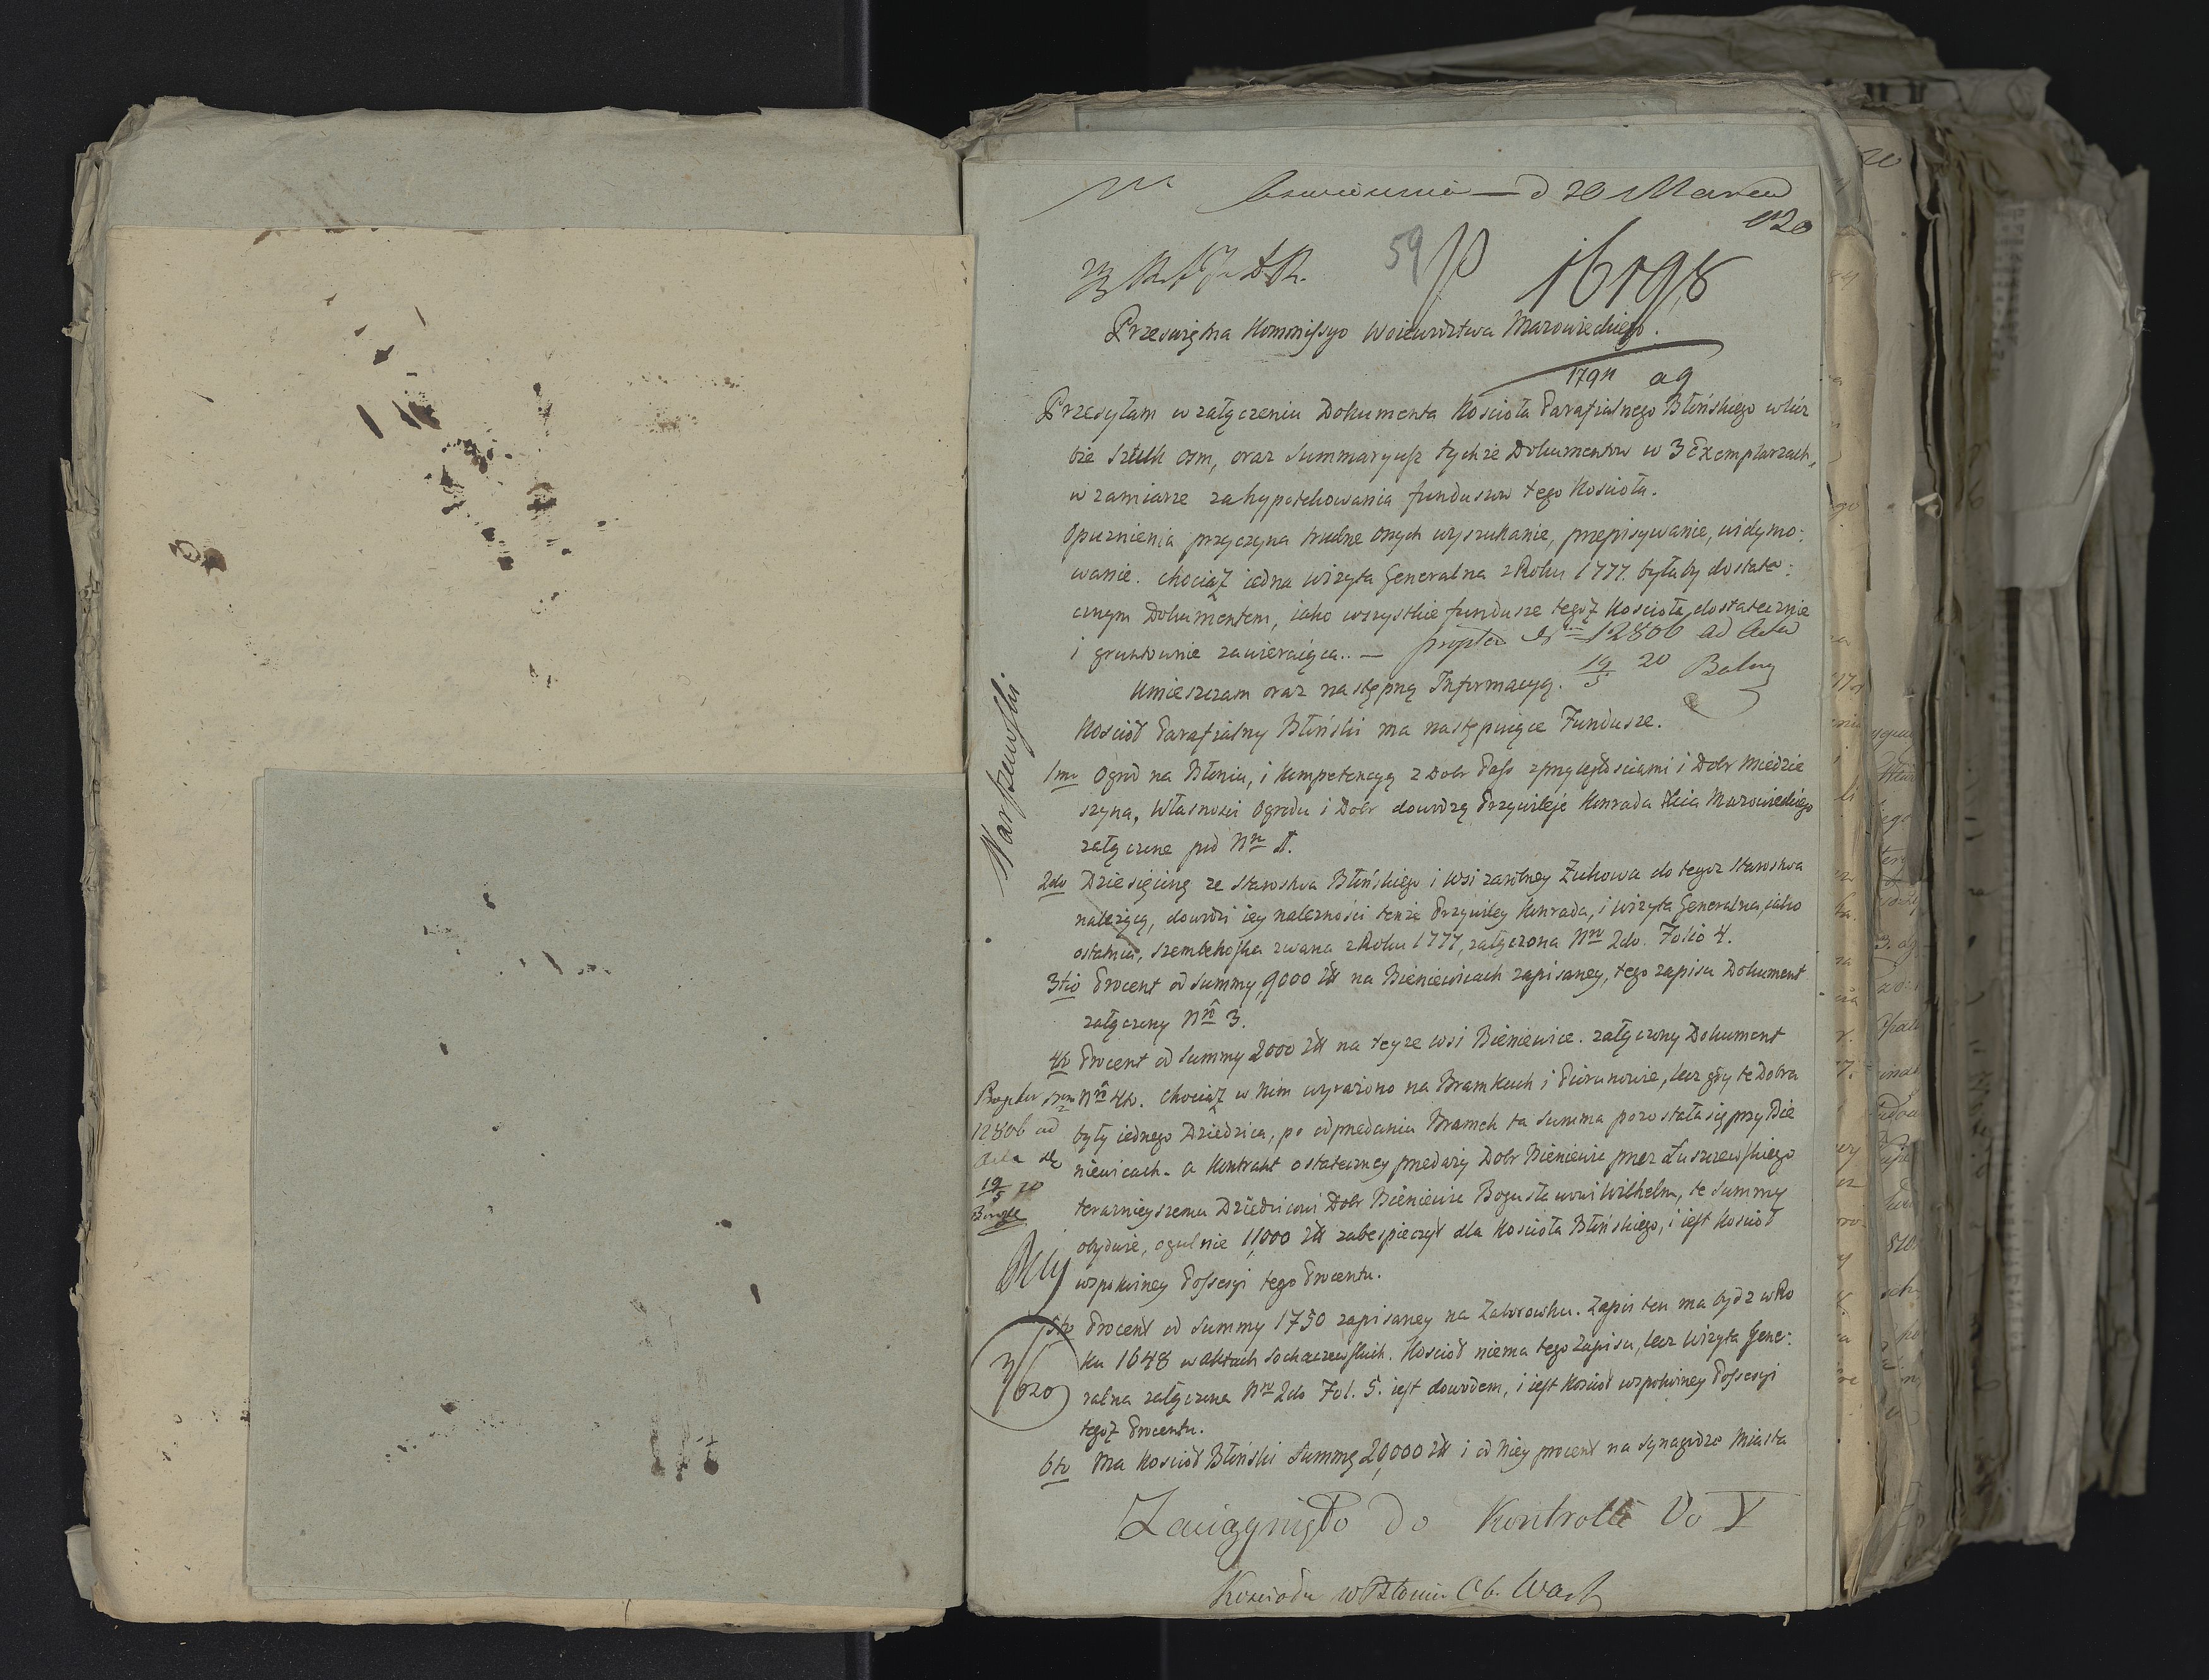 d 20 Marca
820
59
16198
Przeświętna Kommissyo Woiewództwa Mazowieckiego.
1794 ag
Przesyłam w załączeniu Dokumenta Kościoła Parafialnego Błońskiego w licz
bie sztuk osm, oraz Summaryusz tychże Dokumentów w 3 Exemplarzach,
w zamiarze zahypotekowania funduszów tego Kościoła.
Opuznienia przyczyna trudne onych wyszukanie, przepisywanie, widymo:
wanie. chociaż iedna wizyta Generalna z Roku 1777. byłaby dostate:
cznym Dokumentem, iako wszystkie fundusze tegoż Kościoła dostatecznie
i gruntownie zawieraiąca. —
propter Nrum 12806 ad Acta
19/5 20
Umieszczam oraz następną Informacyą.
Kościół Parafialny Błoński ma następuiące Fundusze.
1mo Ogrod na Błoniu, i kompetencyą z Dobr Pass z przyległościami i Dobr Miedzie
szyna, Własności Ogrodu i Dobr dowodzą Przywileje Konrada Xcia Mazowieckiego
załączone pod Nro 1.
2do Dziesięcinę ze Starostwa Błońskiego i wsi zarobney Żukowa do tegoż Starostwa
należącą, dowodzi iey należności tenże Przywiley Konrada, i wizyta Generalna, iako
ostatnia, Szembekoska zwana z Roku 1777, załączona Nro 2do. Folio 4.
3tio Procent od summy 9000 Złł na Bieniewicach zapisaney, tego zapisu Dokument
załączony Nro 3.
4to Procent od Summy 2000 Złł na teyze wsi Bieniewice. załączony Dokument
Nro 4to. chociaż w Nim wyrażono na Bramkach i Piorunowie, lecz gdy te Dobra
były iednego Dziedzica, po odprzedaniu Bramek ta Summa pozostała się przy Bie
niewicach. a Kontrakt ostateczney przedaży Dobr Bieniewic przez Łuszczewskiego
teraznieyszemu Dziedzicowi Dobr Bieniewic Bogusławowi Wilhelm, te summy
obydwie, ogulnie 11,000 Złł zabespieczył dla Kościoła Błońskiego, i iest Kościół
w spokoiney Possesyi tego Procentu.
5to Procent od Summy 1750 zapisaney na Zaborowku. Zapis ten ma bydz w Ro
ku 1648 w aktach Sochaczewskich. Kościół niema tego Zapisu, lecz Wizyta Gene:
ralna załączona Nro 2do Fol. 5. iest dowodem, i iest Kościół w spokoiney Possesyi
tegoż Procentu.
6to Ma Kościół Błoński Summę 20,000 Złł i od Niey procent na Synagodze Miasta
Warszewski
12806 ad
Acta
19/5 20
Zaciągnięto do Kontrolli
Kościoła w Błoniu Ob. Warsz